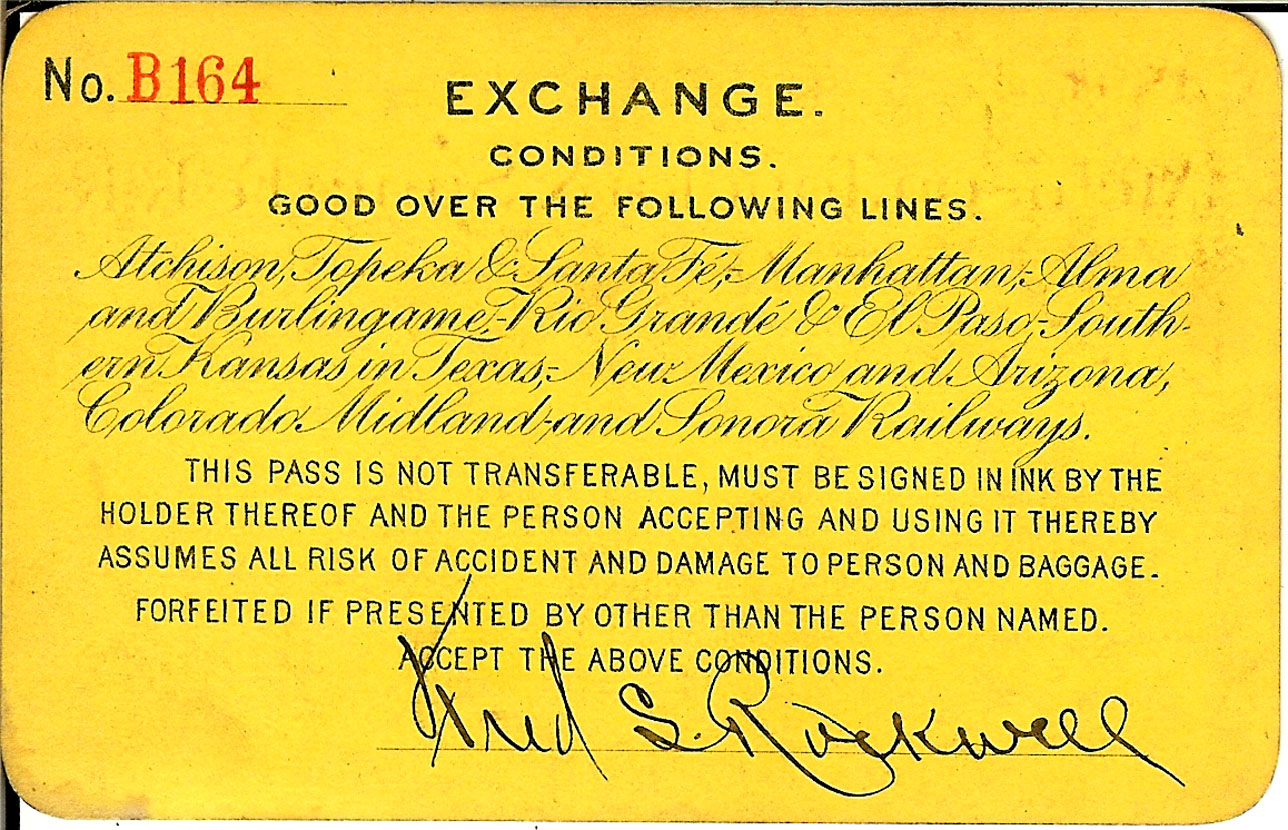 No. B164
EXCHANGE.
CONDITIONS.
GOOD OVER THE FOLLOWING LINES.
Atchison, Topeka & Santa Fé,-Manhattan,-Alma
and Burlingame,-Rio Grandé & El Paso,-South-
ern Kansas in Texas,-New Mexico and Arizona,
Colorado Midland-and Sonora Railways.
THIS PASS IS NOT TRANSFERABLE, MUST BE SIGNED IN INK BY THE
HOLDER THEREOF AND THE PERSON ACCEPTING AND USING IT THEREBY
ASSUMES ALL RISK OF ACCIDENT AND DAMAGE TO PERSON AND BAGGAGE.
FORFEITED IF PRESENTED BY OTHER THAN THE PERSON NAMED.
ACCEPT THE ABOVE CONDITIONS.
Fred S. Rockwell